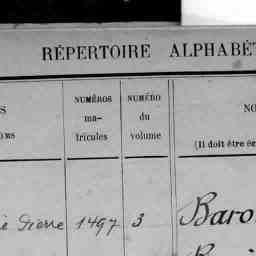 RÉPERTOIRE ALPHABÉT
S
OMS
NUMÉROS
ma-
tricules
NUMÉRO
du
volume
NO
(Il doit être éc
ie Pierre 1497 3 Baro